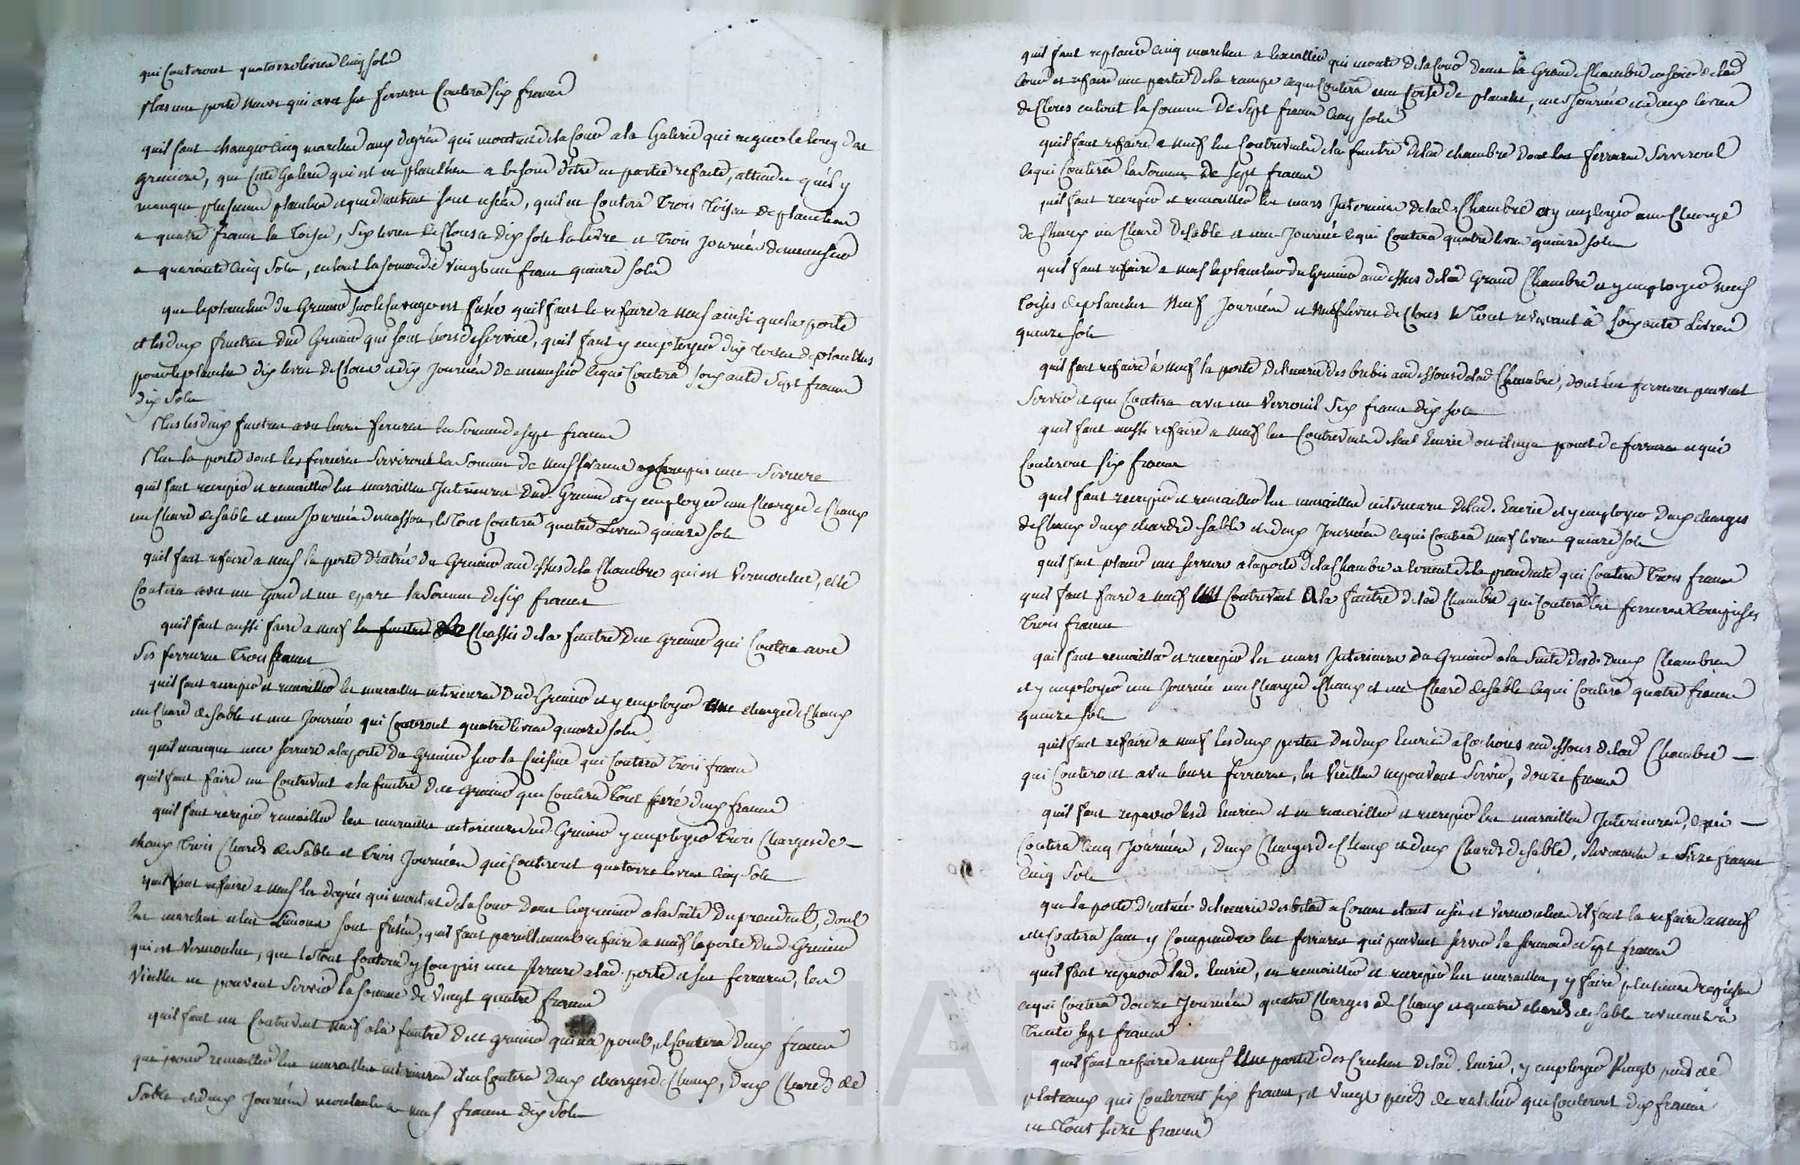 qui Couteront quatorze livres Cinq sols
Plus une porte neuve qui avec ses ferrures Coutera six francs
quil faut changer Cinq marches aux degrés qui montent de la Cour a la Galerie qui regne le long des
greniers, que Cette Galerie qui est en planches a besoin d'être en partie refaite, attendu quil y
manque plusieurs planches et que d'autres sont usées, quil en Coutera Trois Toises de planches
a quatre francs la Toise, six livres de Clous a dix sols la livre et trois Journées de menuisier
a quarante Cinq Sols, en tout la somme de vingt un francs quinze sols
que le plancher du Grenier sur le est fusé quil faut le refaire a neuf ainsi que la porte
et les deux fenetres dud Grenier qui sont hors de service, quil faut y employer dix toises de planches
pour le plancher dix livres de Clous et dix Journées de menuisier ce qui Coutera soixante sept francs
dix sols
Plus les deux fenetres avec leurs ferrures la somme de sept francs
Plus la porte dont les ferrures serviront la somme de neuf francs y Compris une serrure
quil faut recrepir et remailler les murailles Interieures dud. Grenier et y employer une Charge de Chaux
un Chard de sable et une Journée de masson, le Tout Coutera quatre Livres quinze sols
quil faut refaire a neuf la porte d'entrée du Grenier au dessus de la Chambre qui est vermoulue, elle
Coutera avec un gond et une esparre la somme de six francs
quil faut aussi faire a neuf la fenetre Chassis de la fenetre dud Grenier qui Coutera avec
ses ferrures Trois francs
quil faut recrepir et remailler les murailles interieures dud. Grenier et y employer une charge de Chaux
un Chard de sable et une Journée qui Couteront quatre livres quinze sols
quil manque une serrure a la porte du Grenier sur la Cuisine qui Coutera Trois francs
quil faut faire un Contrevent a la fenetre dud grenier qui Coutera Tout ferré deux francs
quil faut recrepir remailler les murailles interieures dud Grenier y employer trois Charges de
chaux Trois Chards de sable et trois Journées qui Couteront quatorze livres Cinq sols
quil faut refaire a neuf les degrés qui montent de la Cour dans le grenier a la suite du precedent, dont
les marches et les Limons sont fusés, quil faut pareillement refaire a neuf la porte dud Grenier
qui est vermoulue, que le Tout Coutera y Compris une serrure a lad. porte et ses ferrures, les
vieilles ne pouvant servir la somme de vingt quatre francs
quil faut un Contrevent neuf a la fenetre dud grenier qui na point, il Coutera deux francs
que pour remailler les murailles interieures il en Coutera deux charges de Chaux, deux Chards de
Sable et deux Journées montant a neuf francs dix sols
quil faut replacer Cinq marches a l'escallier qui monte de la Cour dans la Grande Chambre
Cour et refaire une partie de la rampe ce qui Coutera une Toise de planches, une Journée et deux livres
de Clous en tout la somme de sept francs Cinq sols
quil faut refaire a neuf les Contrevents de la fenetre de lad chambre dont les ferrures serviront
ce qui Coutera la somme de sept francs
quil faut recrepir et remailler les murs Interieurs de lad. Chambre et y employer une Charge
de Chaux un Chard de sable et une Journée ce qui Coutera quatre livres quinze sols
quil faut refaire a neuf le plancher du Grenier au dessus de lad Grande Chambre et y employer neuf
toises de planches neuf Journées et neuf livres de Clous le Tout revenant à soixante Livres
quinze sols
quil faut refaire à neuf la porte de l'ecurie des brebis au dessous de lad Chambre, dont les ferrures peuvent
servir et qui Coutera avec un verrouil six francs dix sols
quil faut aussi refaire a neuf les Contrevents de lad Ecurie ou il n'y a point de ferrures et qui
Couteront six francs
quil faut recrepir et remailler les murailles interieures de lad. Ecurie et y employer deux charges
de Chaux deux chards de sable et deux Journées ce qui Coutera neuf livres quinze sols
quil faut placer une serrure a la porte de la Chambre a Coté de la precedente qui Coutera trois francs
quil faut faire a neuf un Contrevent a la fenetre de lad Chambre qui Coutera les ferrures Comprises
Trois francs
quil faut remailler et recrepir les murs Interieurs du Grenier a la suite desd. deux Chambres
et y employer une Journée une Charge de Chaux et un Chard de sable ce qui Coutera quatre francs
quinze sols
quil faut refaire a neuf les deux portes des deux Ecuries a Cochons au dessous de lad Chambre
qui Couteront avec leurs ferrures, les vieilles ne pouvant servir, douze francs
quil faut repaver lesd Ecuries et en remailler et recrepir les murailles Interieures, ce qui
Coutera Cinq Journées, deux Charges de Chaux et deux Chards de sable, revenant a seize francs
Cinq sols
que la porte d'entrée de l'ecurie des betes a Cornes etant usée et vermoulue il faut la refaire a neuf
et Coutera sans y Comprendre les ferrures qui peuvent servir la somme de sept francs
quil faut repaver lad. Ecurie, en remailler et recrepir les murailles, y faire plusieurs
ce qui Coutera douze Journées quatre Charges de Chaux et quatre chards de sable revenant à
Trente sept francs
quil faut refaire a neuf une partie des Creches de lad. Ecurie, y employer vingt pieds de
plateaux qui Couteront six francs, et vingt pieds de ratelier qui Couteront dix francs
en Tout seize francs